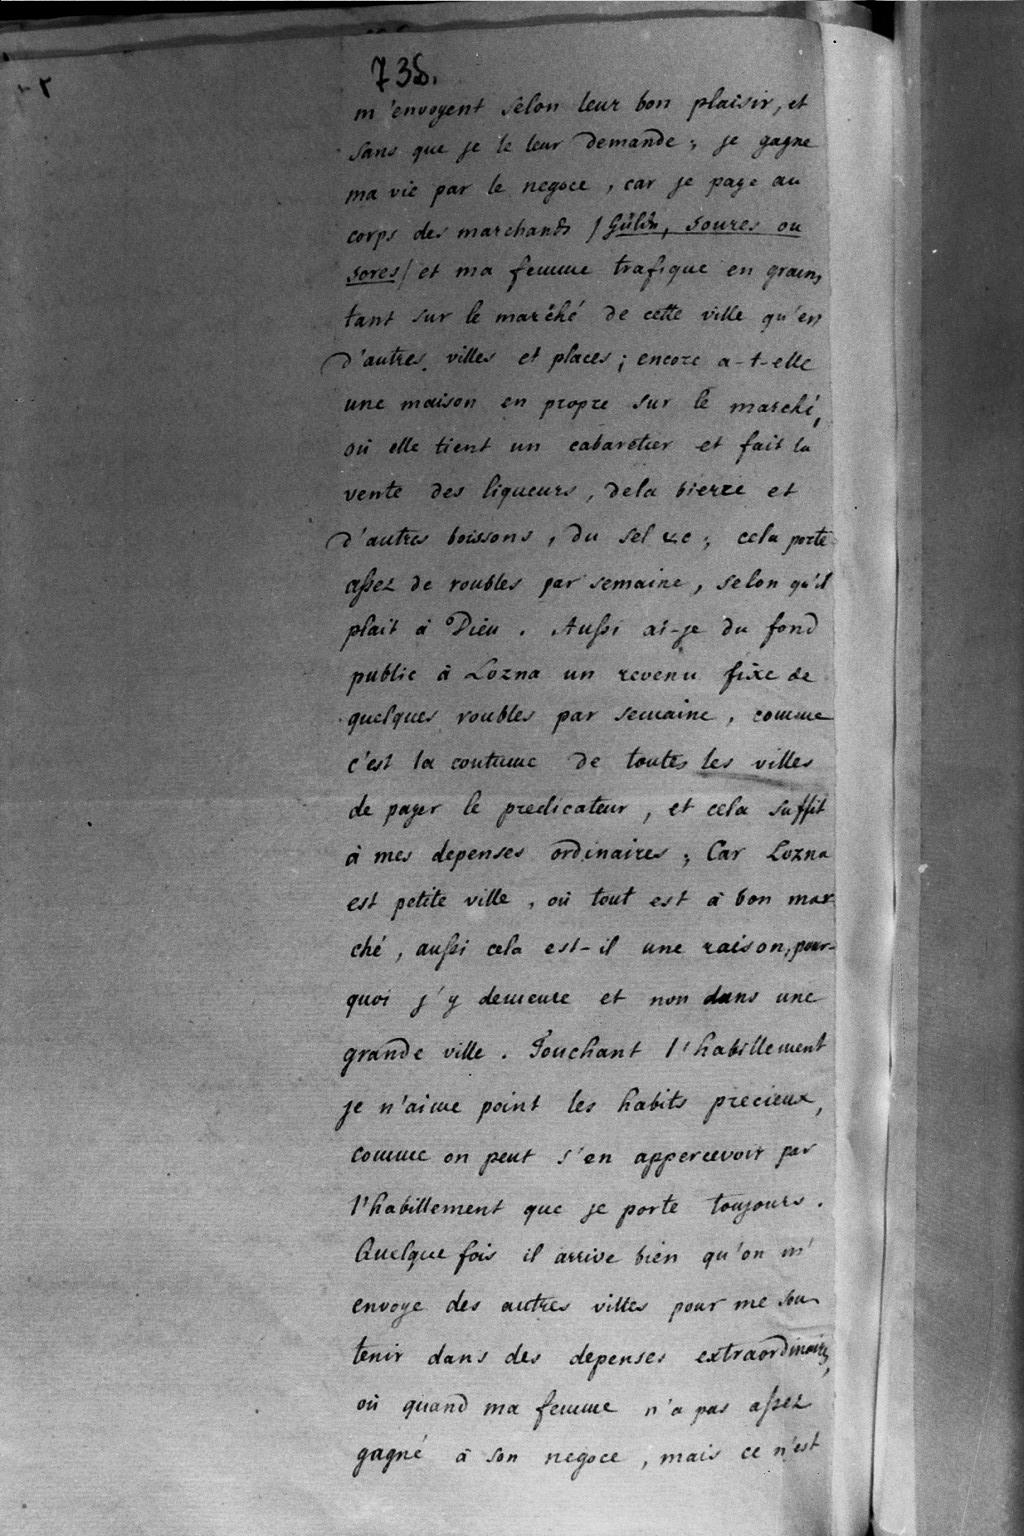 738.
m'envoyent selon leur bon plaisir, et
sans que je le leur demande; je gagne
ma vie par le negoce, car je paye au
corps des marchands / Güldn, soures ou
sores / et ma femme trafique en grains
tant sur le marché de cette ville qu'en
d'autres villes et places; encore a-t-elle
une maison en propre sur le marché,
où elle tient un cabaretier et fait la
vente des liqueurs, dela bierre et
d'autres boissons, du sel &c; cela porte
assez de roubles par semaine, selon qu'il
plait à Dieu. Aussi ai-je du fond
public à Lozna un revenu fixe de
quelques roubles par semaine, comme
c'est la coutume de toutes les villes
de payer le predicateur, et cela suffit
à mes depenses ordinaires; Car Lozna
est petite ville, où tout est à bon mar
ché, aussi cela est-il une raison, pour-
quoi j'y demeure et non dans une
grande ville. Touchant l'habillement
je n'aime point les habits precieux,
comme on peut s'en appercevoir par
l'habillement que je porte toujours.
Quelque fois il arrive bien qu'on m'
envoye des autres villes pour me sou
tenir dans des depenses extraordinaires,
où quand ma femme n'a pas assez
gagné à son negoce, mais ce n'est